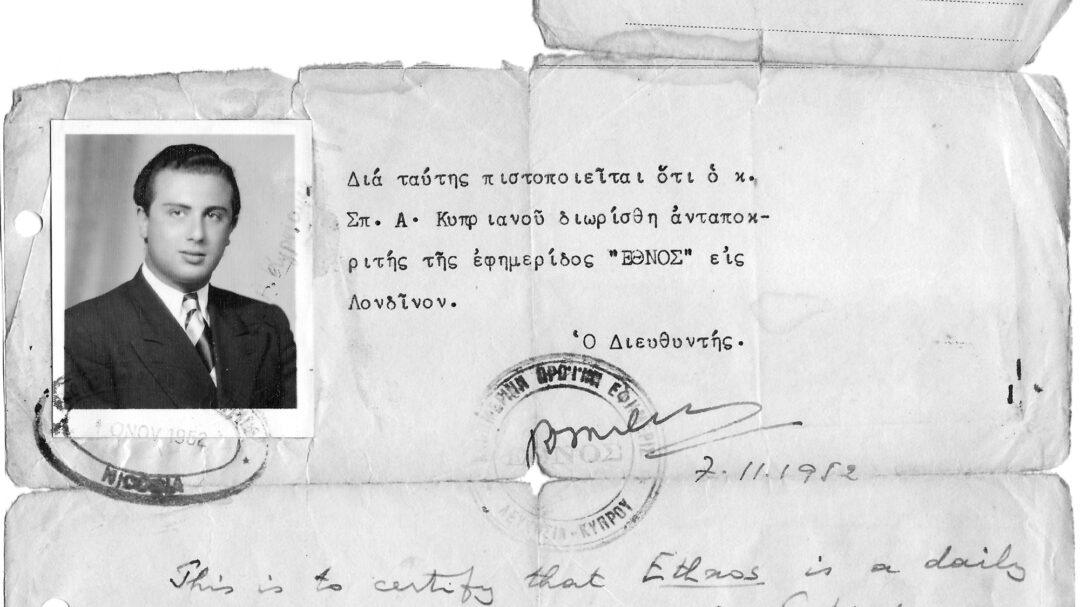 Διά ταύτης πιστοποιεῖται ὅτι ὁ κ.
Σπ. Α. Κυπριανοῦ διωρίσθη ἀνταποκ-
ριτής τῆς ἐφημερίδος "ΕΘΝΟΣ" εἰς
Λονδῖνον.
Ὁ Διευθυντής.
ΠΡΩΙΝΗ
ΕΘΝΟΣ
ΛΕΥΚΩΣΙΑ-ΚΥΠΡΟΥ
7.11.1952
NOV 1952
NICOSIA
This is to certify that Ethnos is a daily